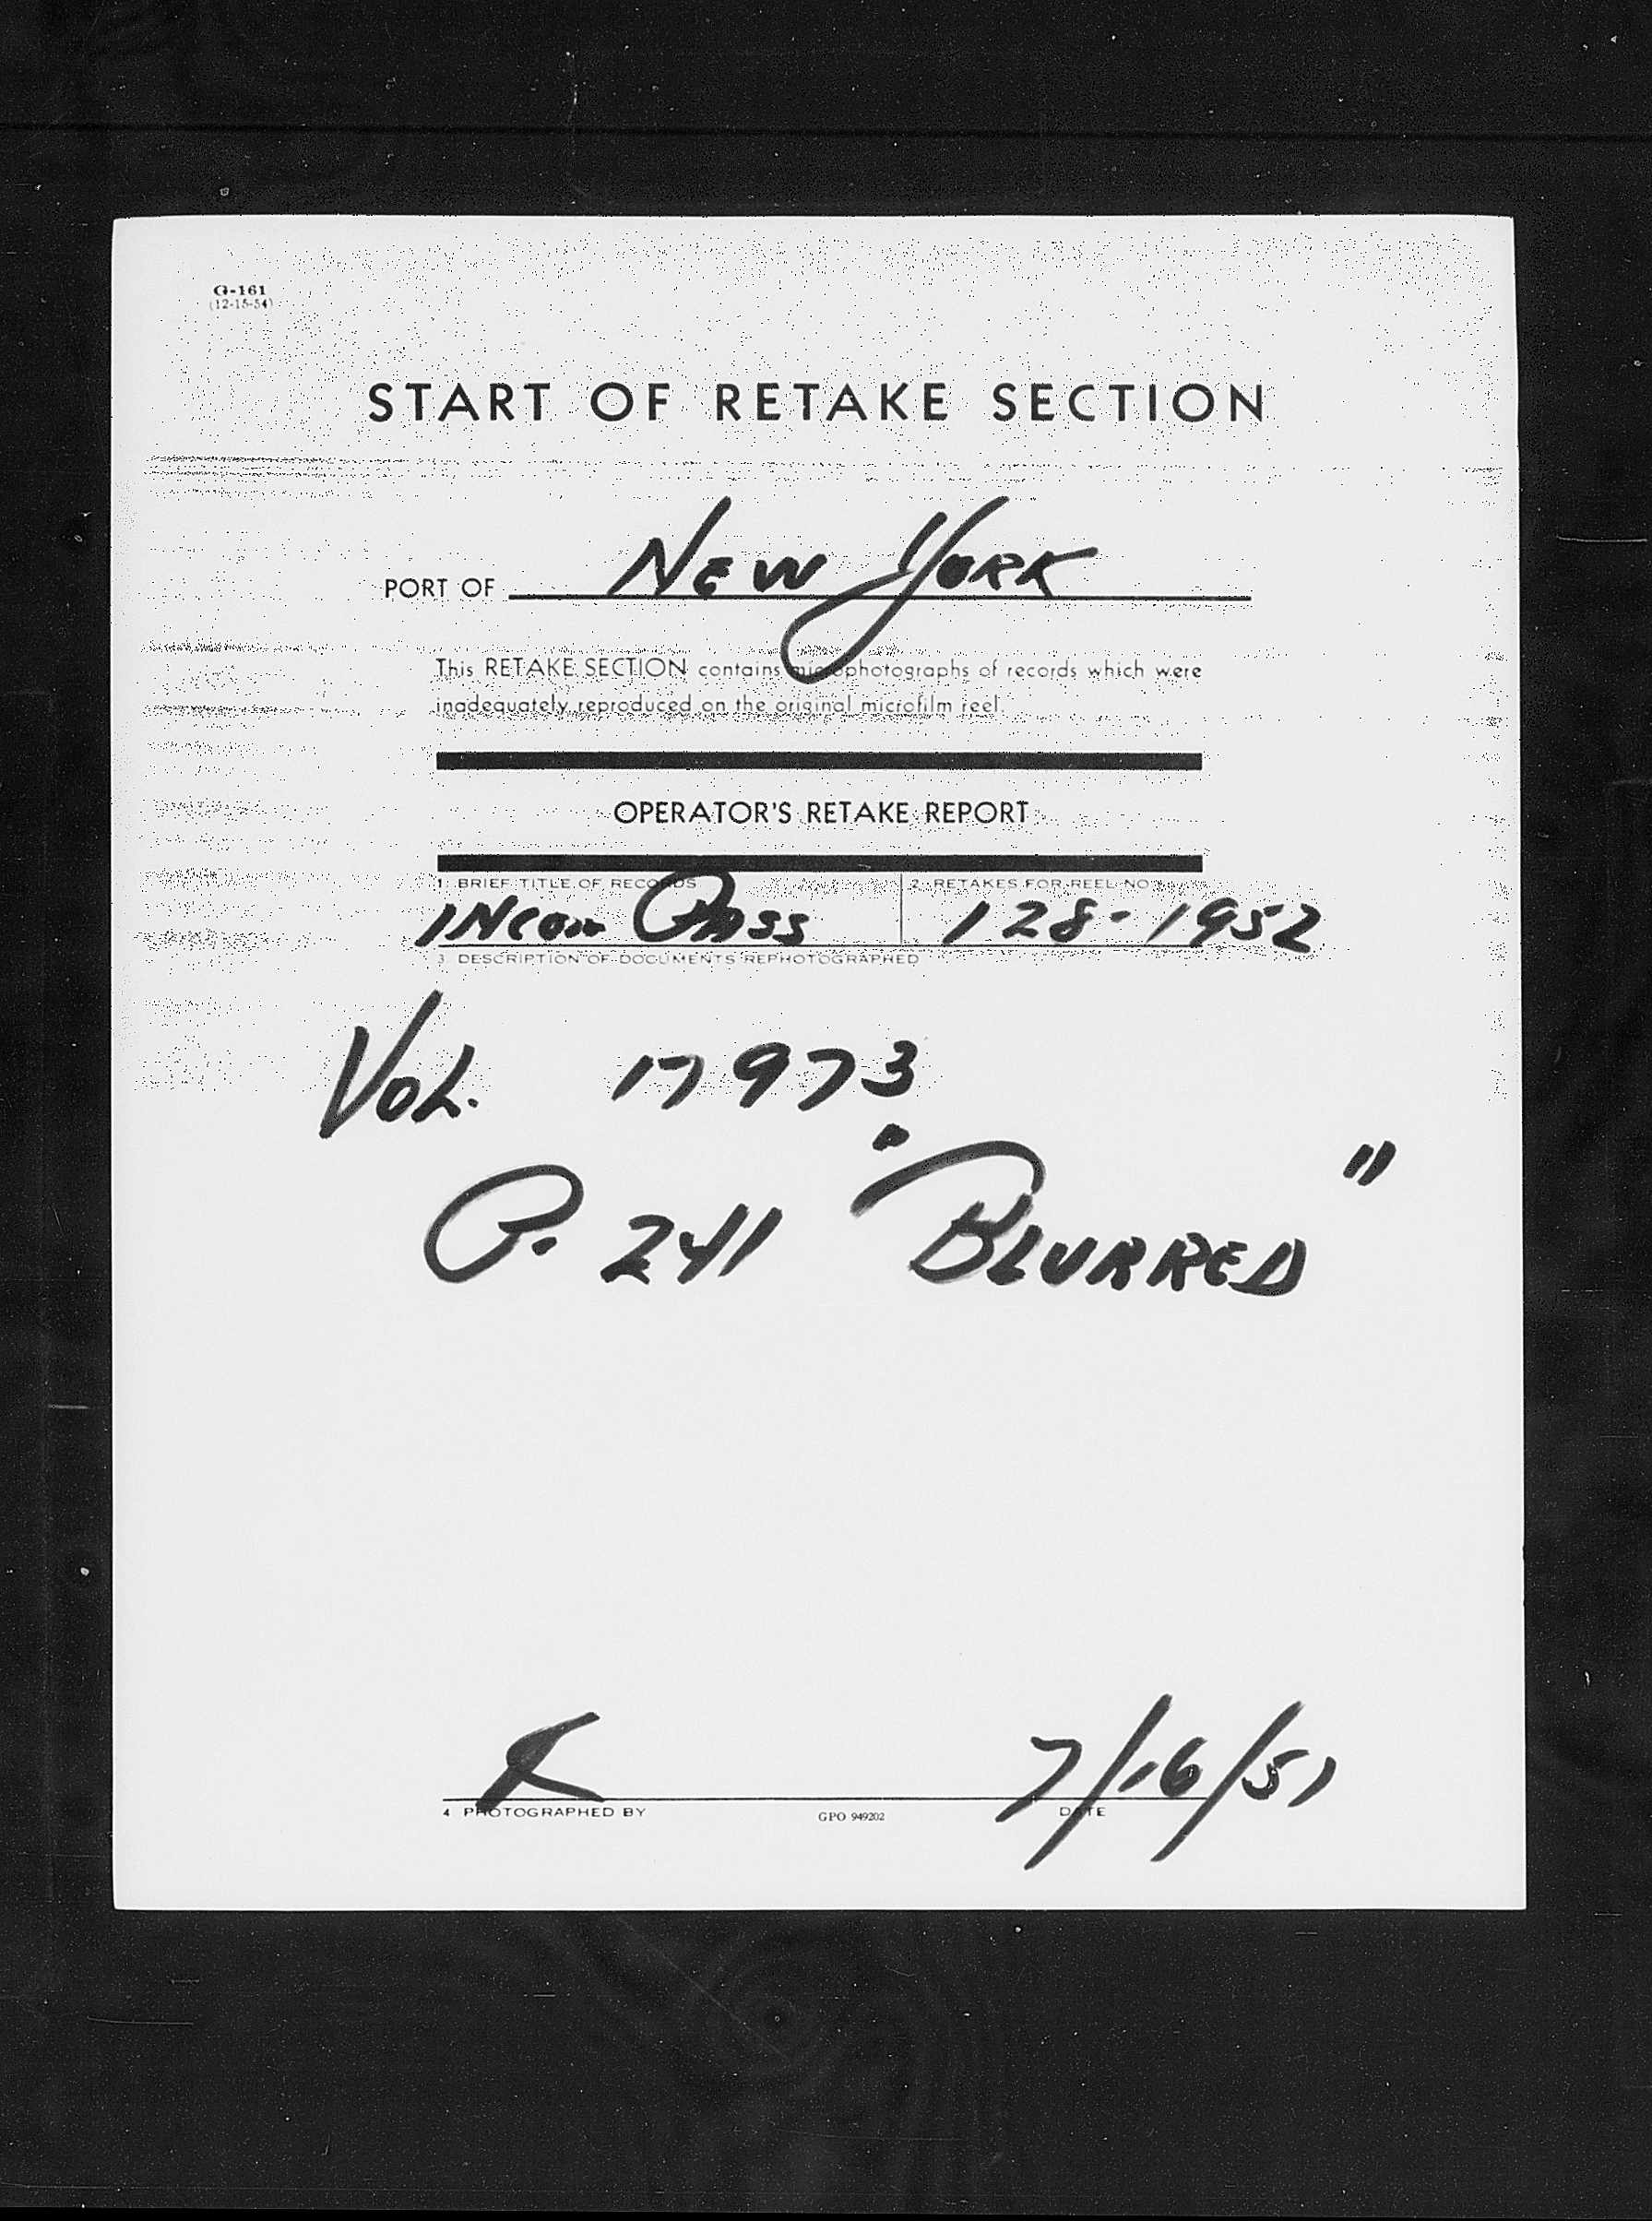 G-161
(12-15-54)
START OF RETAKE SECTION
PORT OF NEW YORK
This RETAKE SECTION contains microphotographs of records which were
inadequately reproduced on the original microfilm reel.
OPERATOR'S RETAKE REPORT
1. BRIEF TITLE OF RECORDS 2. RETAKES FOR REEL NO.
INCOM PASS 128-1952
3. DESCRIPTION OF DOCUMENTS REPHOTOGRAPHED
VOL. 17973
P. 241 "BLURRED"
7/16/57
4 PHOTOGRAPHED BY GPO 949202 DATE